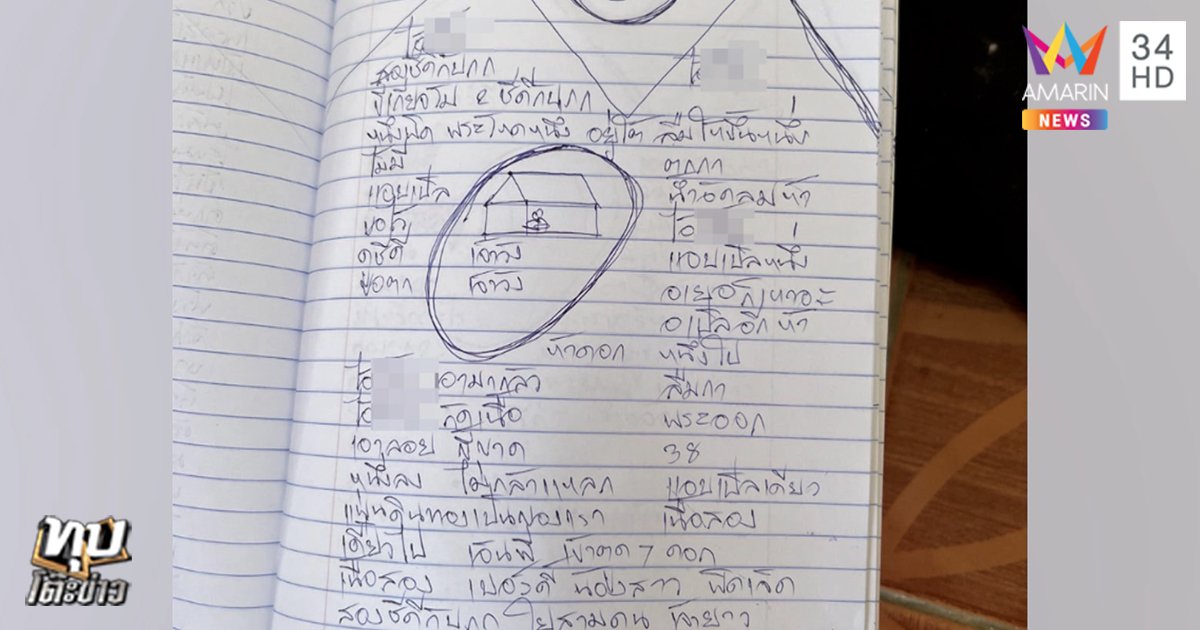 AMARIN
NEWS
34
HD
ไอ
สองชีดีกับภก
ขี้เกียจโม ๕ ชีดีกับภก
หนึ่งผิด พระโหดหนึ่ง อยู่ใต้ ลืมให้ขึ้นหนึ่ง
ไม่มี ตุณา
แอบเปิล น้ำอัดลมห้า
ขอโบ ไอ
ดีซีดี เจ้าวัง แอบเปิลหนึ่ง
เจ้าวัง
อเปิลอีกห้า
ห้าดอก หนึ่งไป
ไอ เอามากลัว ลืมกา
ไอ กัดเนื้อ พระออก
เอาลอย สี่ขาด 38
หนึ่งลง ไม่กล้าแหลก แอบเปิลเดียว
แผ่นดินทองเป็นของเรา เนื้อสอง
เดี๋ยวไป เอ็นพี เข้าตด 7 ดอก
เนื้อสอง เปอร์ดี น้องสาว ผิดเจ็ด
สองซีดีกับภก ใบสามตน เจ้ายาว
ทุบ
โต๊ะข่าว